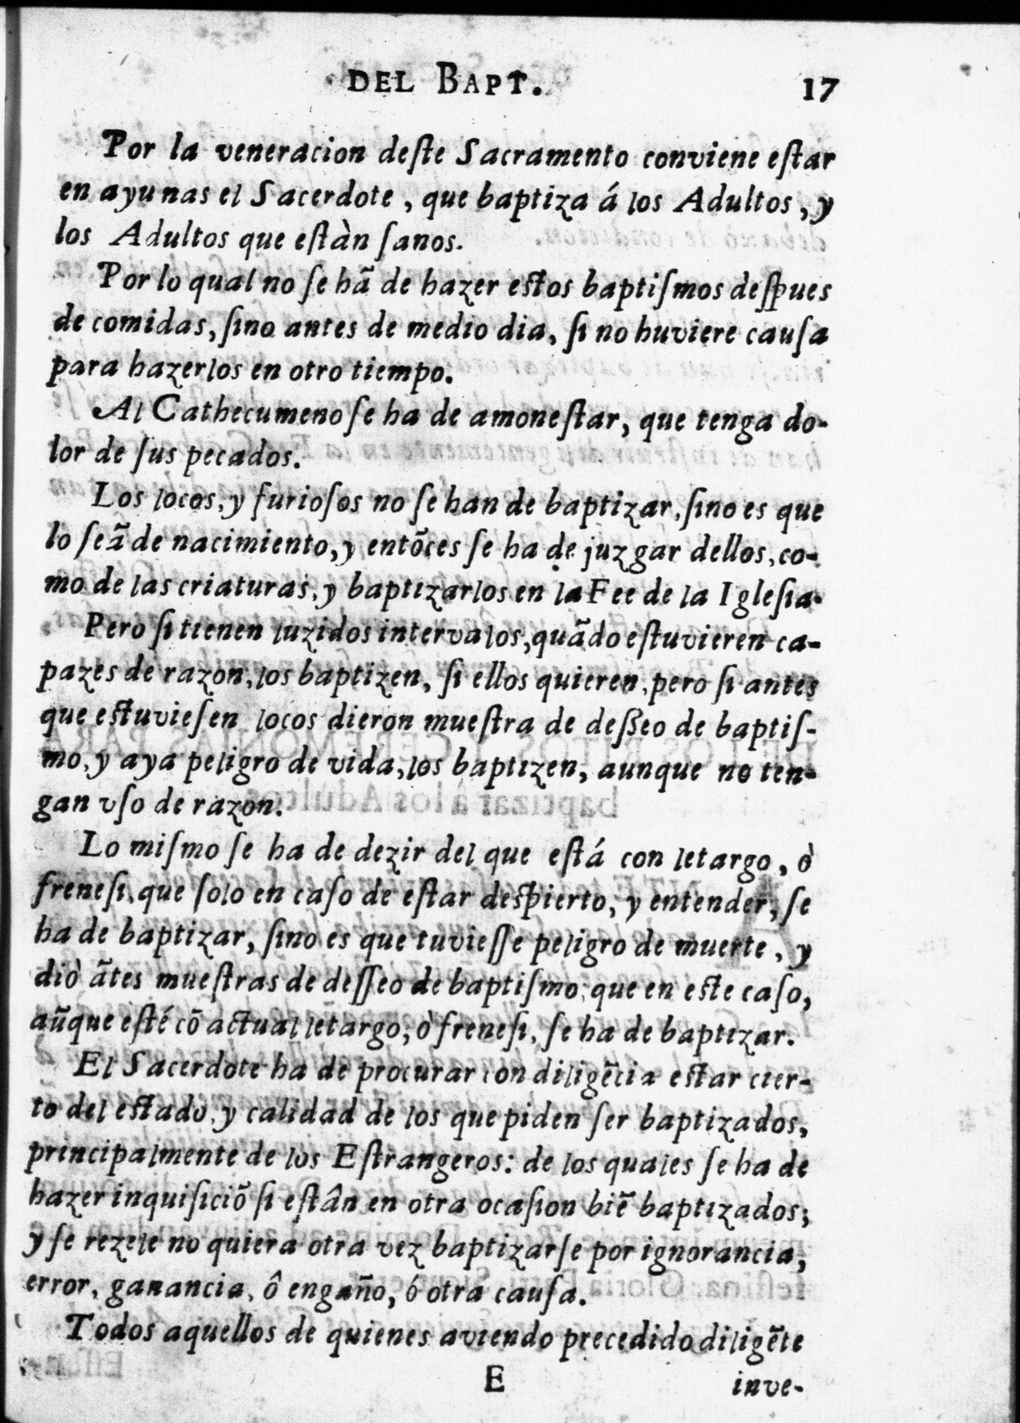 DEL BAPT. 17
Por la veneracion deſte Sacramento conviene eſtar
en ayunas el Sacerdote, que baptiza á los Adultos, y
los Adultos que eſtàn ſanos.
Por lo qual no ſe hã de hazer eſtos baptiſmos deſpues
de comidas, ſino antes de medio dia, ſi no huviere cauſa
para hazerlos en otro tiempo.
Al Cathecumeno ſe ha de amoneſtar, que tenga do-
lor de ſus pecados.
Los locos, y furioſos no ſe han de baptizar, ſino es que
lo ſeã de nacimiento, y entõces ſe ha de juzgar dellos, co-
mo de las criaturas, y baptizarlos en la Fee de la Igleſia.
Pero ſi tienen luzidos intervalos, quãdo eſtuvieren ca-
pazes de razon, los baptizen, ſi ellos quieren, pero ſi antes
que eſtuvieſen locos dieron mueſtra de deßeo de baptiſ-
mo, y aya peligro de vida, los baptizen, aunque no ten-
gan vſo de razon.
Lo miſmo ſe ha de dezir del que eſtá con letargo, ò
freneſi, que ſolo en caſo de eſtar deſpierto, y entender, ſe
ha de baptizar, ſino es que tuvieſſe peligro de muerte, y
diò ãtes mueſtras de deſſeo de baptiſmo; que en eſte caſo,
aũque eſté cõ actual letargo, ò freneſi, ſe ha de baptizar.
El Sacerdote ha de procurar con diligẽcia eſtar cier-
to del eſtado, y calidad de los que piden ſer baptizados,
principalmente de los Eſtrangeros: de los quales ſe ha de
hazer inquiſiciõ ſi eſtân en otra ocaſion biẽ baptizados;
y ſe rezele no quiera otra vez baptizarſe por ignorancia,
error, ganancia, ô engaño, ó otra cauſa.
Todos aquellos de quienes aviendo precedido diligẽte
E inve-